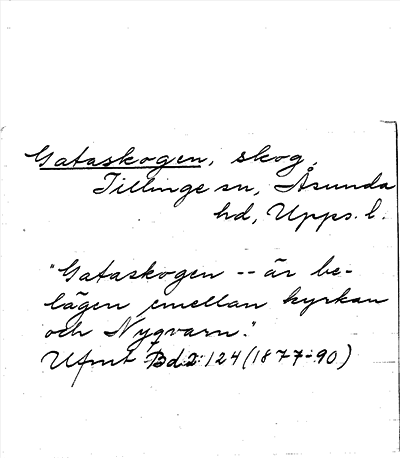 Gataskogen, skog,
Tillinge sn, Åsunda
hd, Upps. l.
"Gataskogen -- är be-
lägen emellan kyrkan
och Nyqvarn."
Ufmt Bd 2: 124 (1877-90)